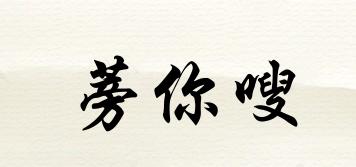 蒡你嗖